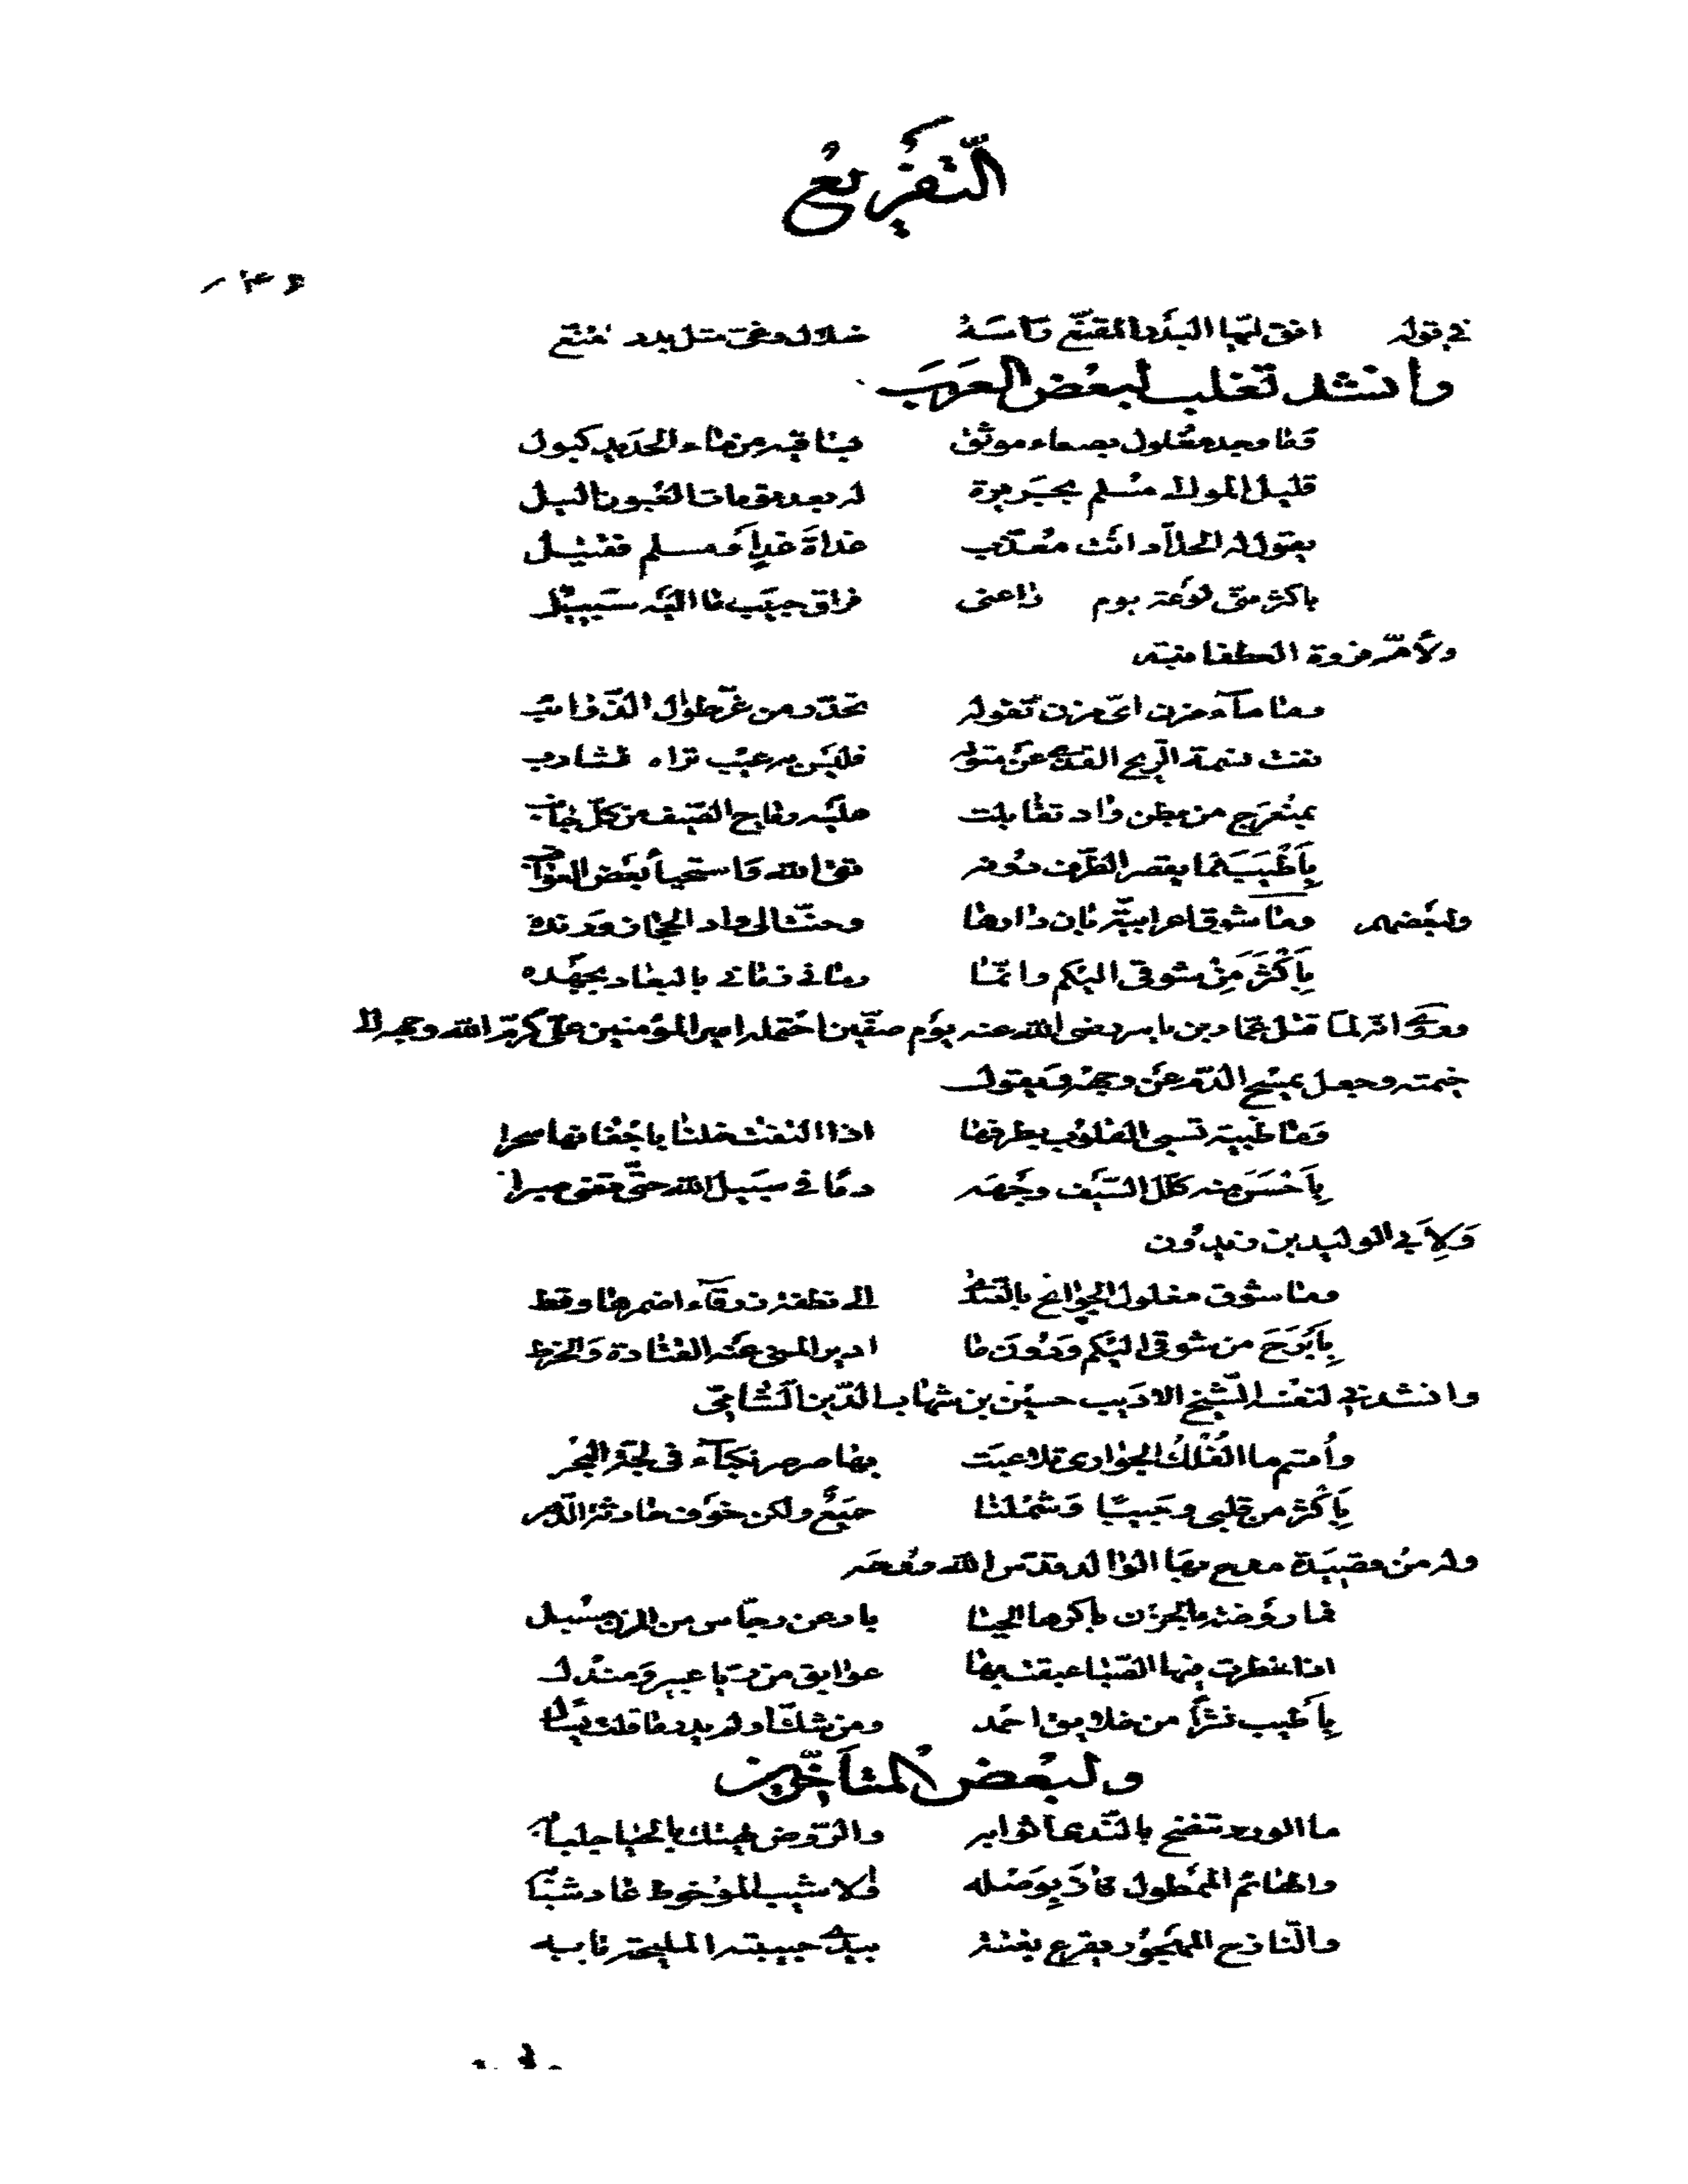 التفريع
في قوله افق انما البدر المقنع رأسه ضلال وغى مثل بدر المقنع
وانشد ثعلب لبعض العرب
وما وجد مغلول بصنعاء موثق بساقيه من ماء الحديد كبول
قليل الموالى مسلم بجريرة له بعد نومات العيون اليل
يقول له الحداد انت معذب غداة غد او مسلم فقتيل
باكثر منى لوعة يوم راعنى فراق حبيب ما اليه سبيل
ولامّ فروة الغطفانية
وما ماء مزن اىّ مزن تقوله تحدّر من غرّ طوال الذوائب
نفت نسمة الريح القذى عن متونه فليس به عيب تراه لشارب
بمنعرج من بطن واد تقابلت عليه رياح الصيف من كل جانب
بأطيب مما يقصر الطرف دونه تقى الله واستحياء بعض العواقب
ولبعضهم وما شوق اعرابية بان دارها وحنت الى واد الحجاز ورنده
بأكثر من شوقى اليكم وانما رمانى زمانى بالبعاد بجهده
وروى انه لما قتل عمار بن ياسر رضى الله عنه يوم صفين احتمله امير المؤمنين على كرم الله وجهه الى
خيمته وجعل يمسح الدم عن وجهه ويقول
وما ظبية تسبى القلوب بطرفها اذا التفتت خلنا باجفانها سحرا
بأحسن منه كلل السيف وجهه دما فى سبيل الله حتى قضى صبرا
ولابي الوليد بن زيدون
وما شوق مغلول الجوانح بالصدى الى نطفة زرقاء اضمرها وقط
بأبرح من شوقى اليكم ودون ما ادير المنى عنه القتادة والخرط
وانشدني لنفسه الشيخ الاديب حسين بن شهاب الدين الشامى
وأقسم ما الفلك الجوارى تلاعبت بها صرصر نكباء فى لجة البحر
بأكثر من قلبى وجيبا وشملنا جميع ولكن خوف حادثة الدهر
وله من قصيدة مدح بها الوالد قدس الله روحه
فما روضة بالحزن باكرها الحيا بادعن رجاس من المزن مسبل
اذا خطرت فيها الصبا عبقت بها عوابق من ريا عبير ومندل
بأطيب نشرا من خلايق احمد ومن شك او لم يدر ما قلت يسأل
ولبعض المتأخرين
ما الورد تنفح بالندى اثوابه والروض يهتك بالحيا جلبابه
والهائم الممطول فاز بوصله ولا شيب للموخوط عاد شبابه
والنازح المهجور يقرع بغتة بيدى حبيبته المليحة بابه